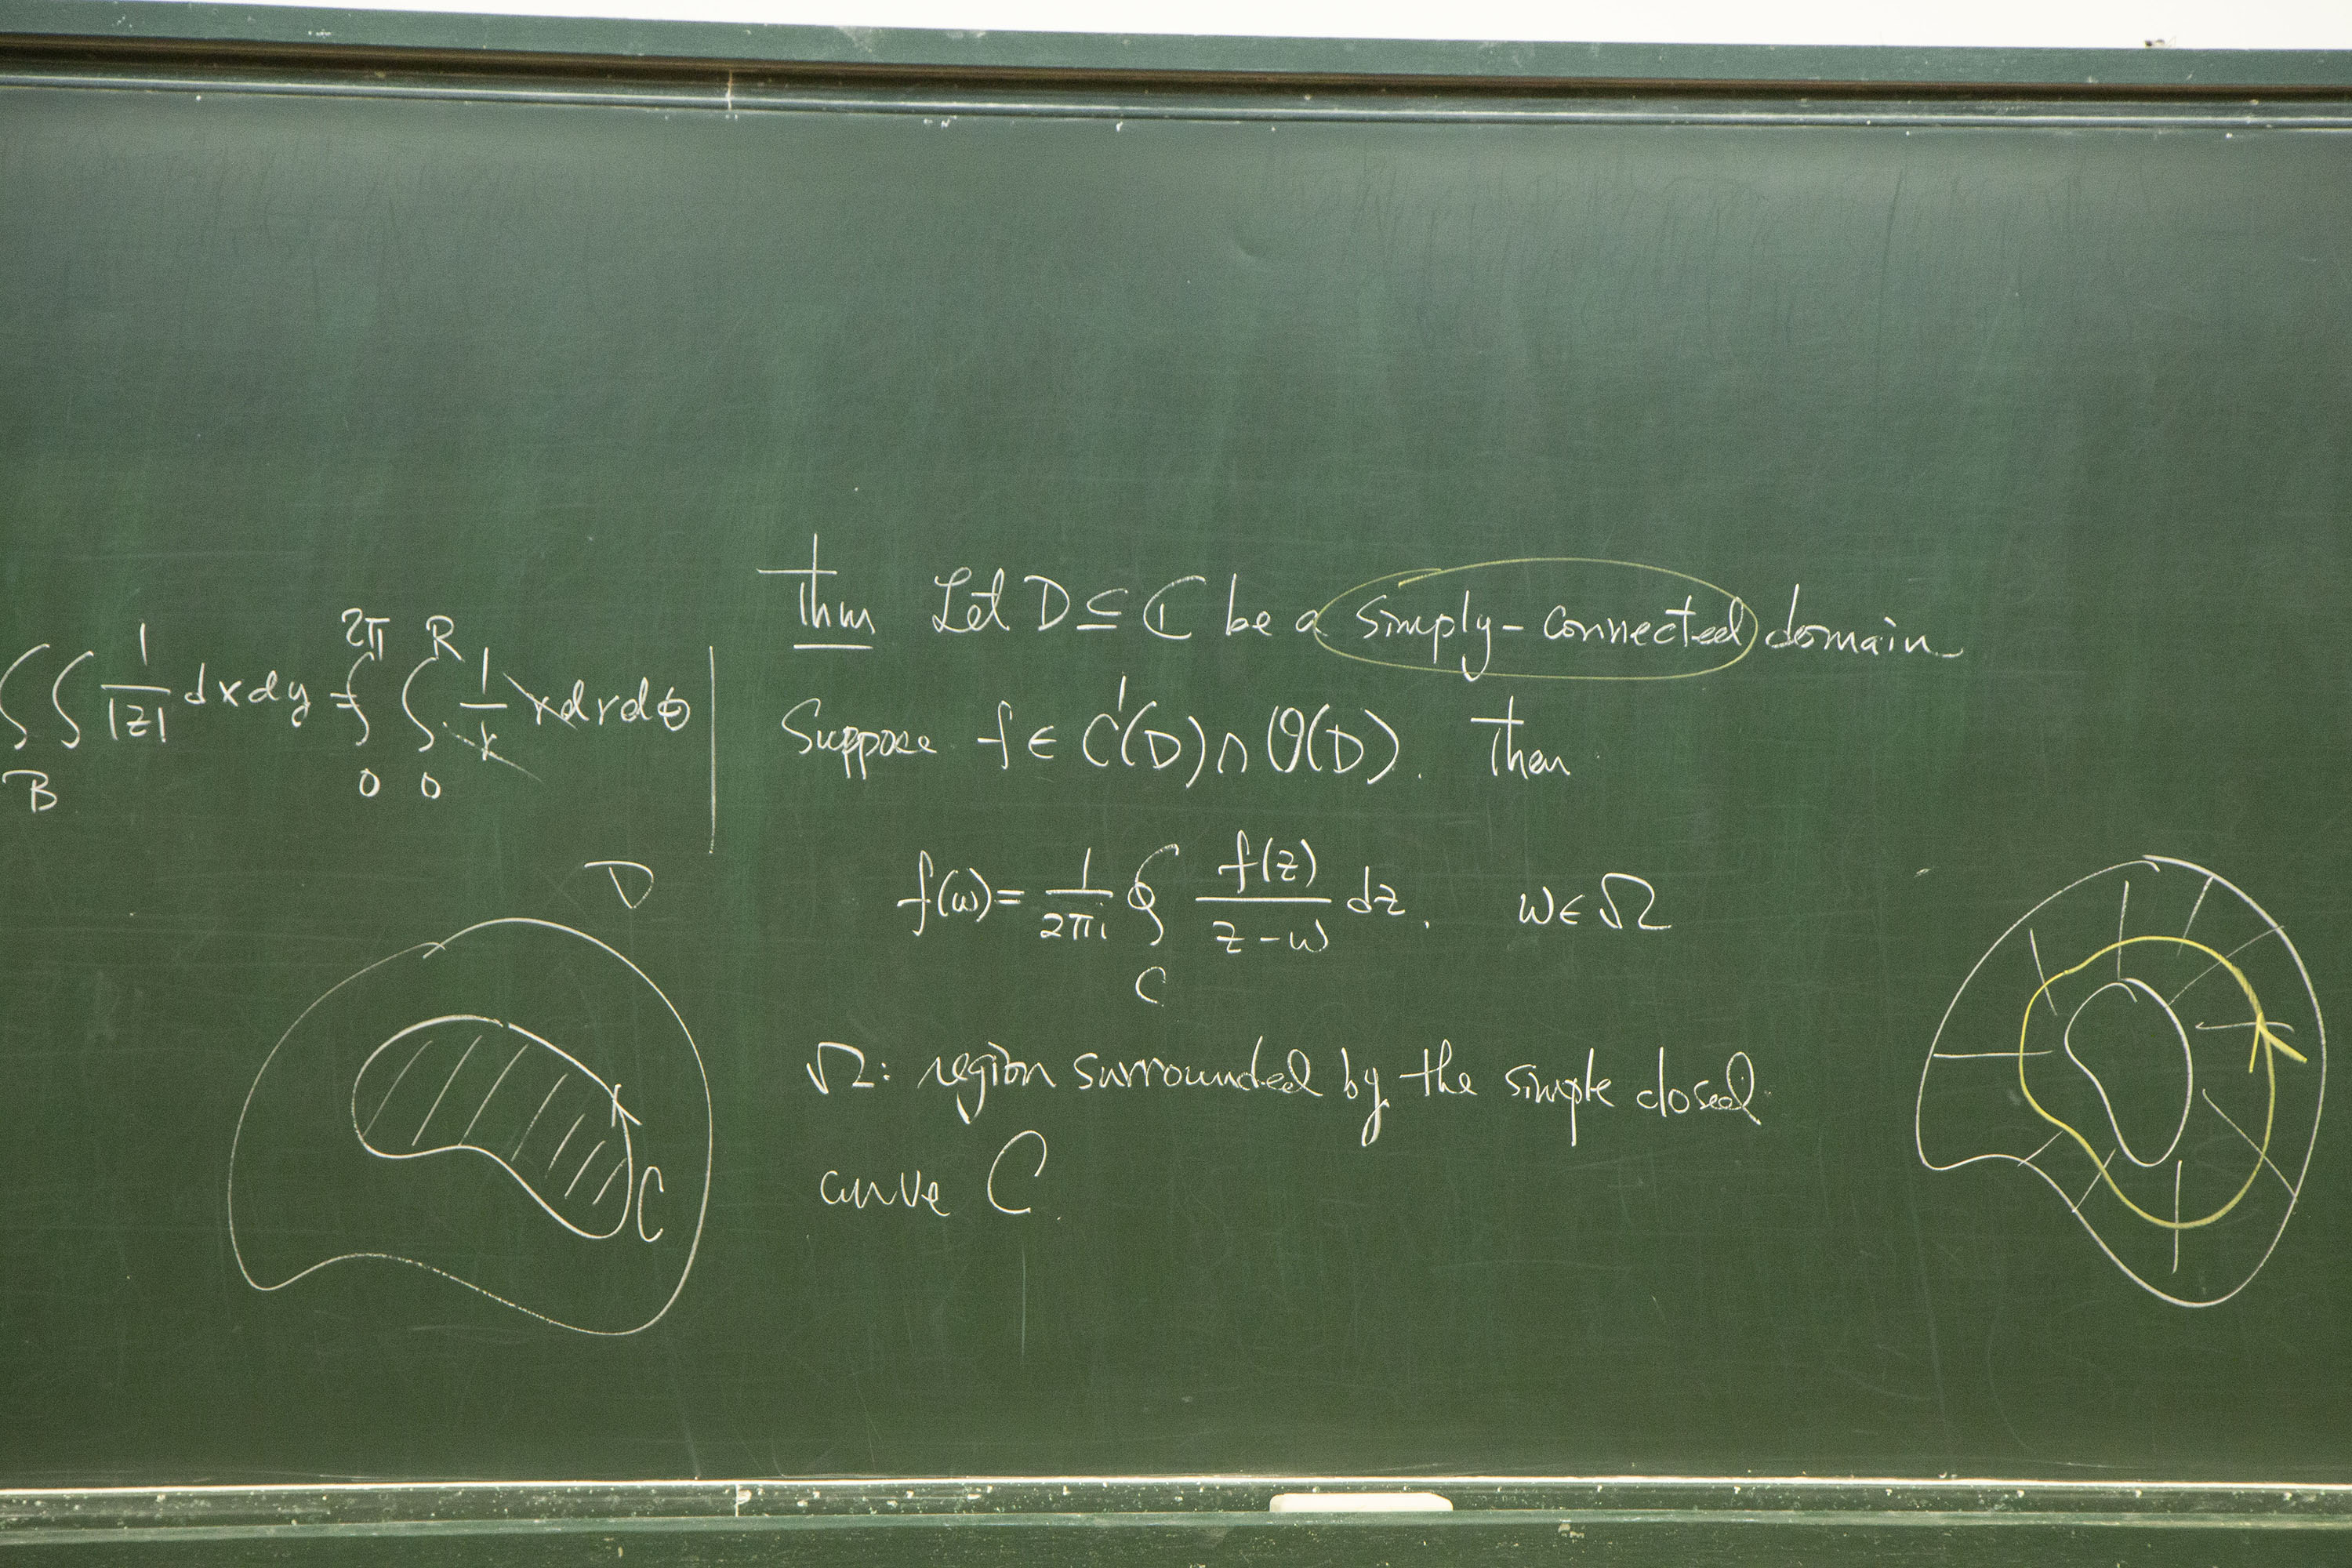 ∫∫_B 1/|z| dxdy = ∫_0^{2π} ∫_0^R 1/r r dr dθ
Thm Let D ⊆ ℂ be a simply-connected domain
Suppose f ∈ C¹(D) ∩ O(D). Then
f(w) = 1/2πi ∮_C f(z)/z-w dz, w ∈ Ω
Ω: region surrounded by the simple closed
curve C
D
C